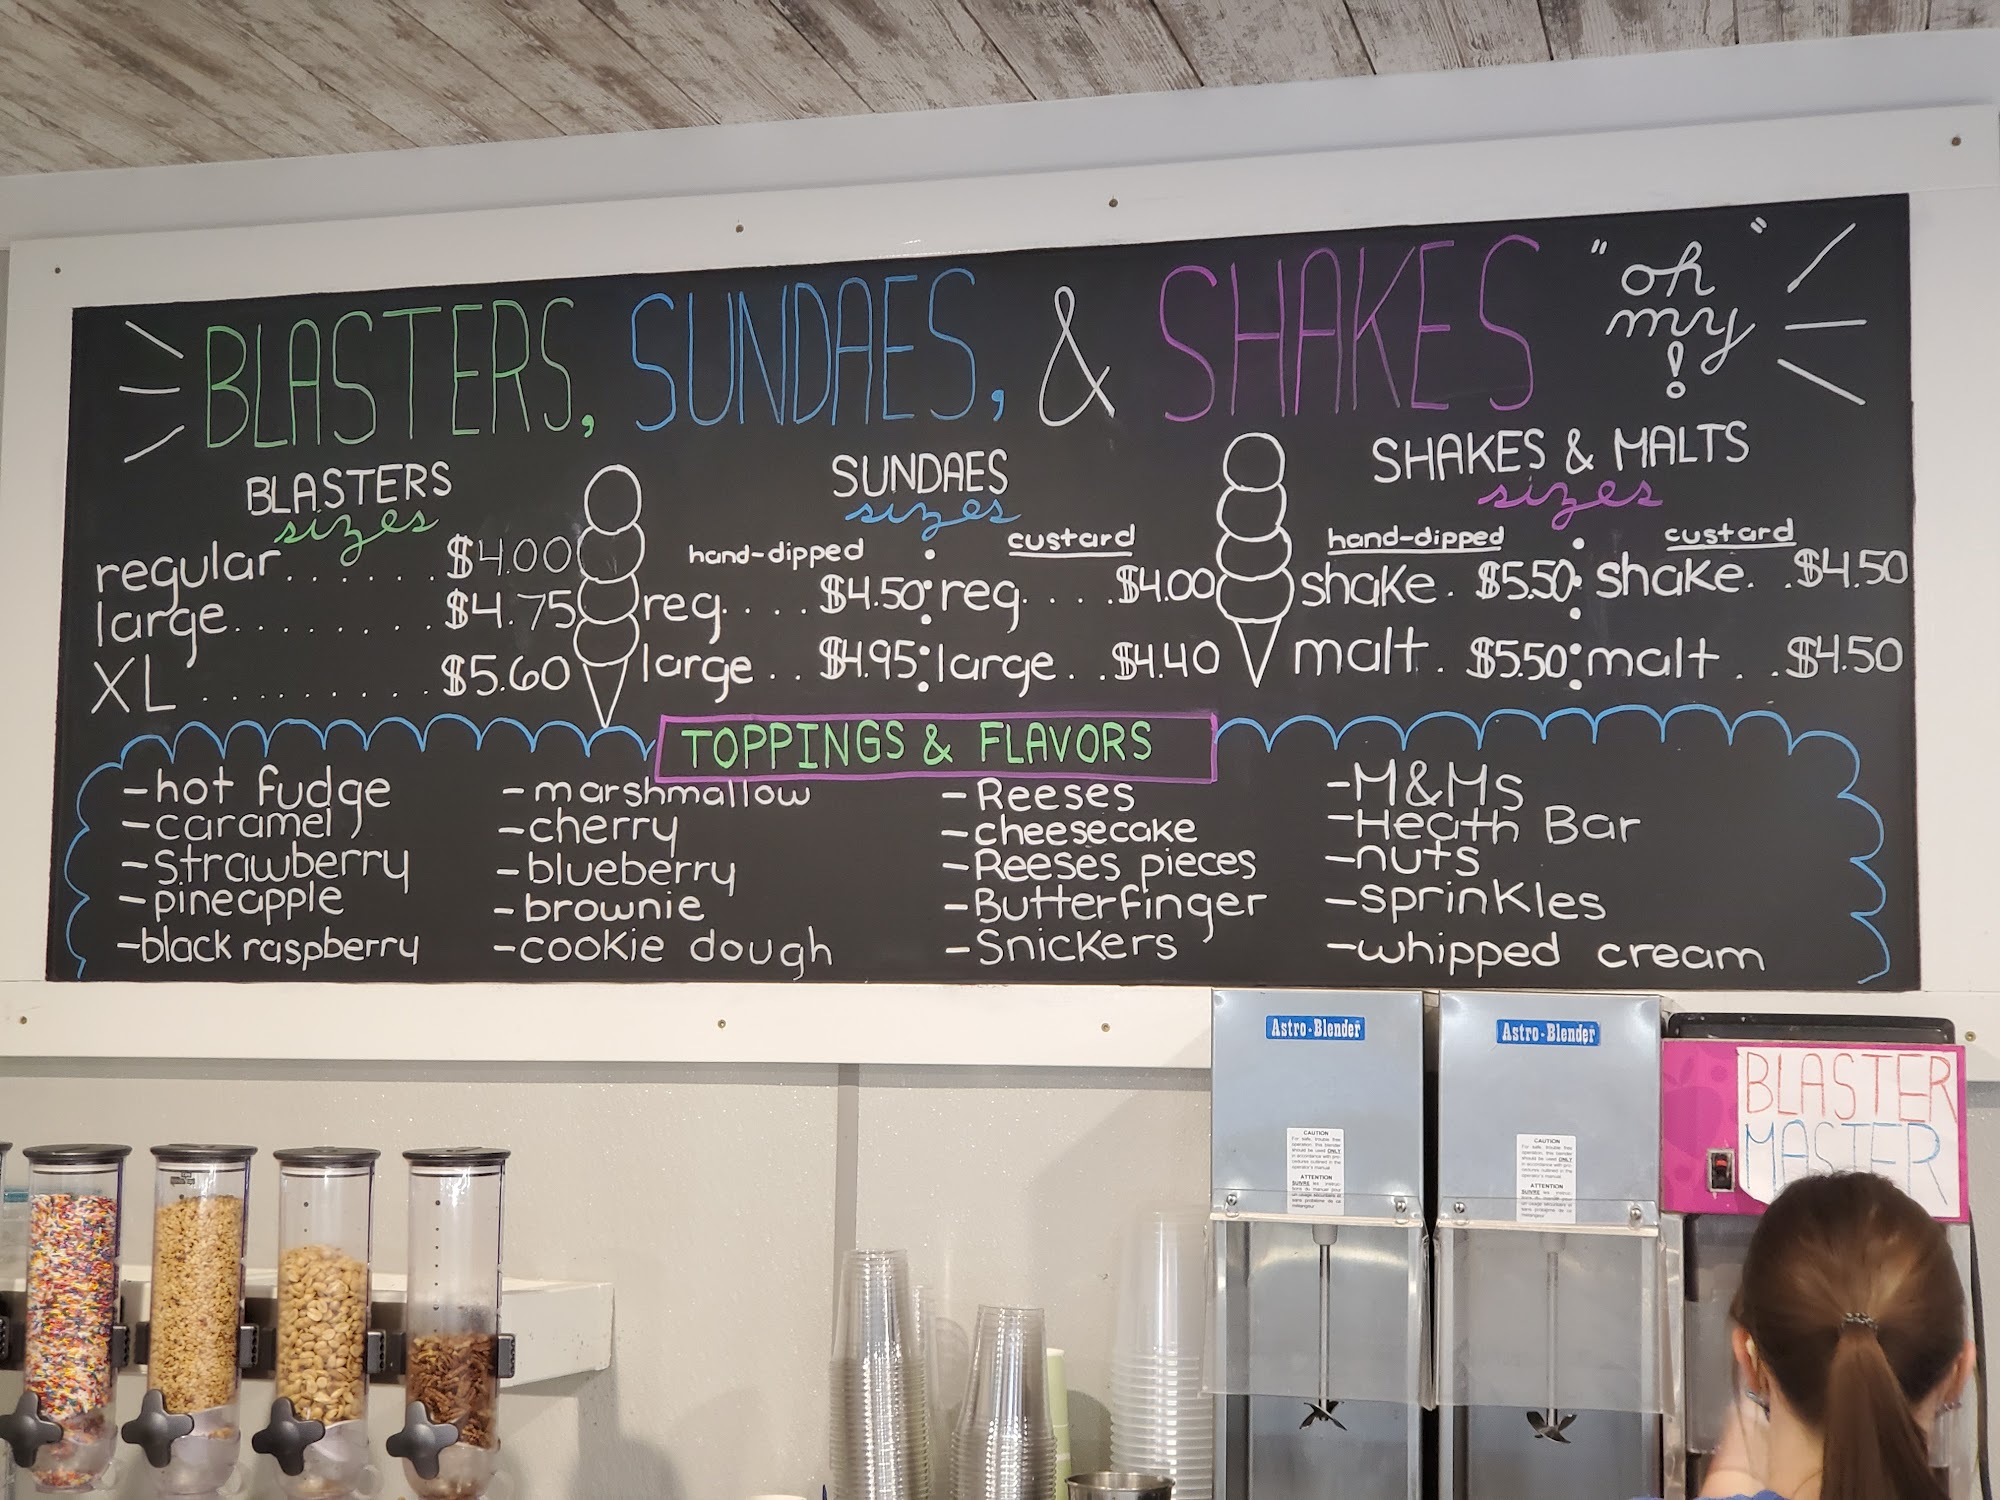 BLASTERS, SUNDAES, & SHAKES "oh my!"
BLASTERS
sizes
regular...... $4.00
large........ $4.75
XL ......... $5.60
SUNDAES
sizes
hand-dipped
reg.... $4.50
large.. $4.95
custard
reg.... $4.00
large.. $4.40
SHAKES & MALTS
sizes
hand-dipped
shake. $5.50
malt. $5.50
custard
shake. . $4.50
malt . . $4.50
TOPPINGS & FLAVORS
-hot fudge
-caramel
-strawberry
-pineapple
-black raspberry
-marshmallow
-cherry
-blueberry
-brownie
-cookie dough
-Reeses
-cheesecake
-Reeses pieces
-Butterfinger
-Snickers
-M&Ms
-Heath Bar
-nuts
-sprinkles
-whipped cream
Astro-Blender
CAUTION
ATTENTION
Astro-Blender
CAUTION
ATTENTION
BLASTER
MASTER